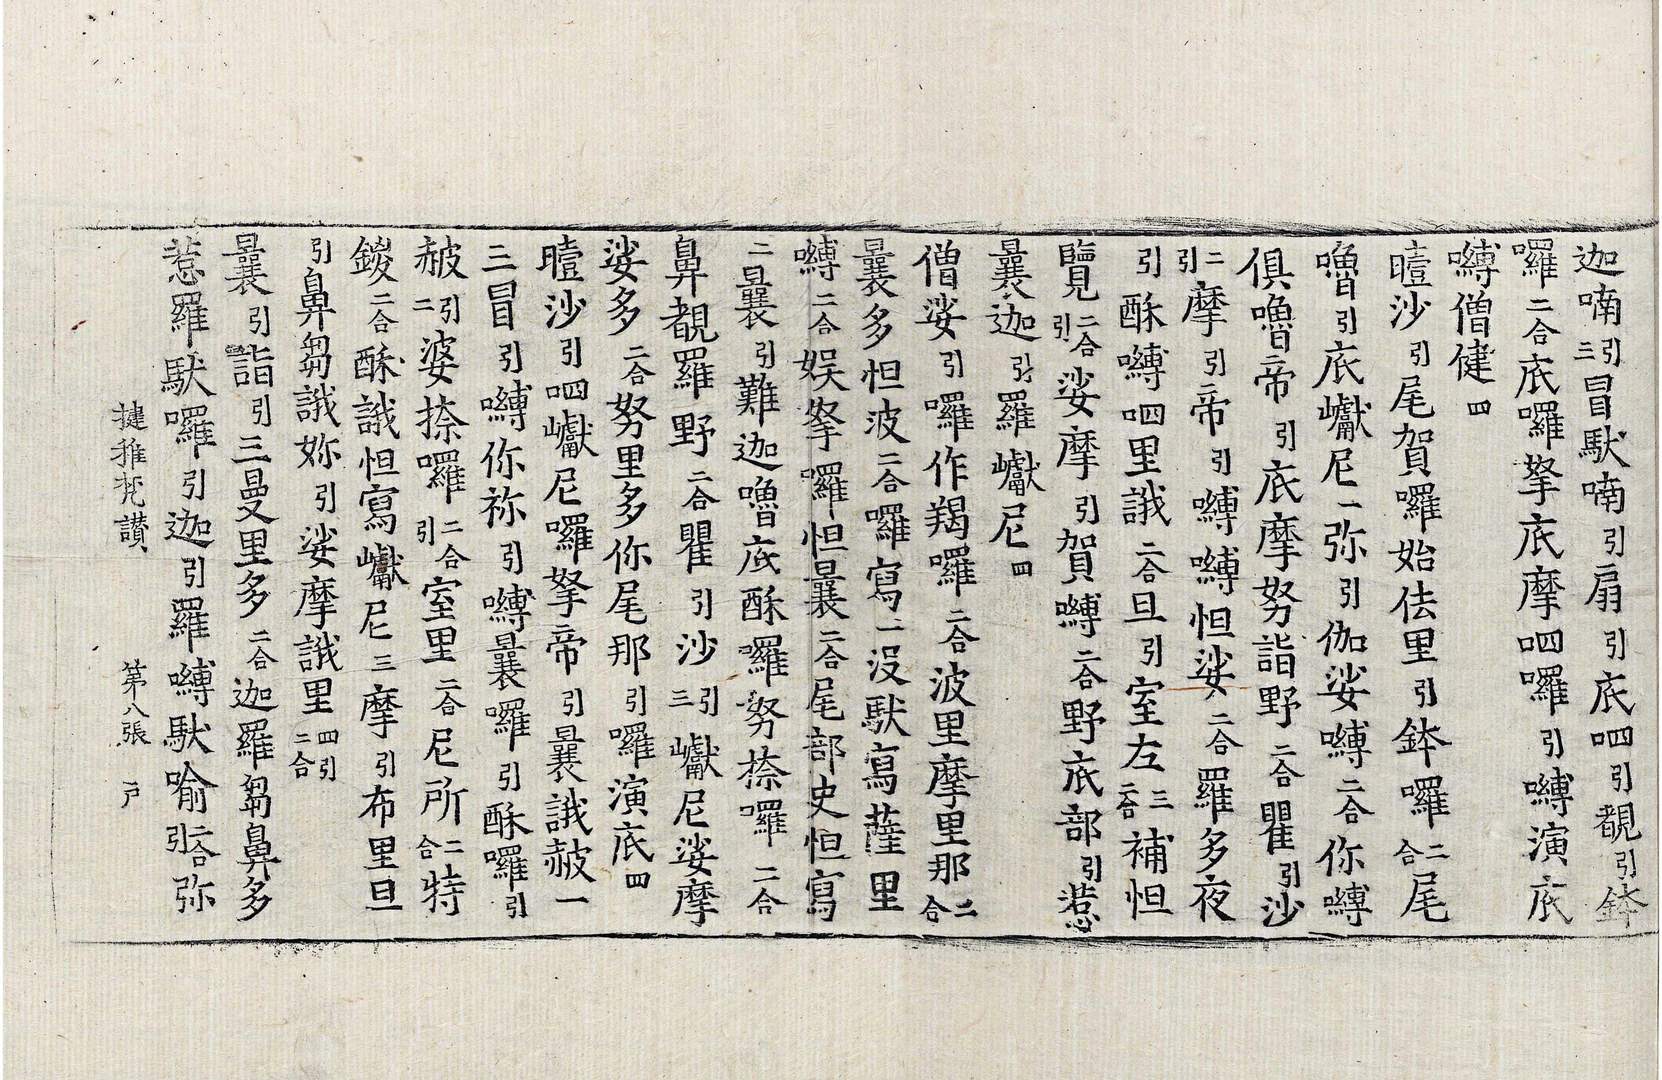 迦喃引三冒馱喃引扇引底呬引覩引鉢
囉二合底囉拏底摩呬囉引嚩演底
嚩僧健四
曀沙引尾賀囉始佉里引鉢囉二合尾
嚕引底巘尼一弥引伽娑嚩二合你嚩
俱嚕帝引底摩努詣野二合瞿引沙
二引摩引帝引嚩嚩怛娑二合羅多夜
引酥嚩呬里誐二合旦引室左三合補怛
覽二合引娑摩引賀嚩二合野底部引惹
曩迦引羅巘尼四
僧娑引囉作羯囉二合波里摩里那二合
曩多怛波二合囉寫一沒馱寫薩里
嚩二合娱拏囉怛曩二合尾部史怛寫
二曩引難迦嚕底酥囉努捺囉二合
鼻覩羅野二合瞿引沙引三巘尼娑摩
娑多二合努里多你尾那引囉演底四
曀沙引呬巘尼囉拏帝引曩誐赧一
三冒引嚩你祢引嚩曩囉引酥囉引
赧引二婆捺囉二合引室里二合尼所二合特
鑁二合酥誐怛寫巘尼三摩引布里旦
引鼻芻誐妳引娑摩誐里四引二合
曩引詣引三曼里多二合迦羅芻鼻多
惹羅馱囉引迦引羅嚩馱喻二合引弥
揵稚梵讃　第八張　戸